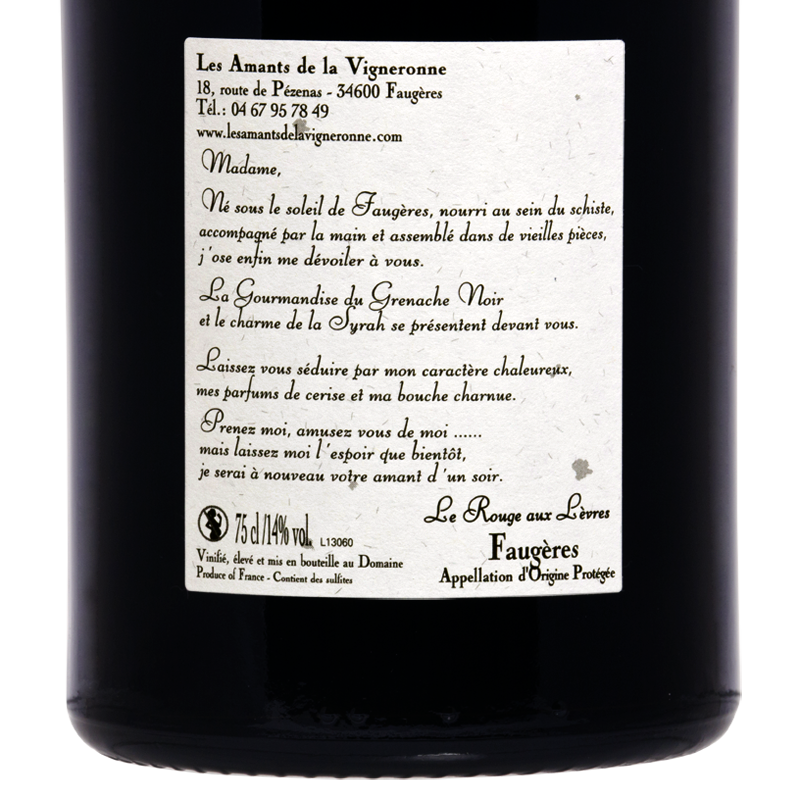 Les Amants de la Vigneronne
18, route de Pézenas - 34600 Faugères
Tél.: 04 67 95 78 49
www.lesamantsdelavigneronne.com
Madame,
Né sous le soleil de Faugères, nourri au sein du schiste,
accompagné par la main et assemblé dans de vieilles pièces,
j'ose enfin me dévoiler à vous.
La Gourmandise du Grenache Noir
et le charme de la Syrah se présentent devant vous.
Laissez vous séduire par mon caractère chaleureux,
mes parfums de cerise et ma bouche charnue.
Prenez moi, amusez vous de moi ......
mais laissez moi l'espoir que bientôt,
je serai à nouveau votre amant d'un soir.
Le Rouge aux Lèvres
75 cl /14% vol. L13060
Faugères
Vinifié, élevé et mis en bouteille au Domaine
Appellation d'Origine Protégée
Produce of France - Contient des sulfites